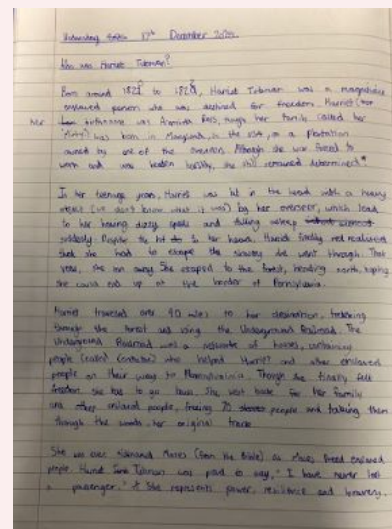 Wednesday 17th December 2025
Who was Harriet Tubman?
Born around 1820 to 1822, Harriet Tubman was a
enslaved person who was destined for freedom. Harriet (her
her birthname was Araminta Ross, though her family called her
was born in Maryland, in the USA, on a plantation
owned by one of the Although she was forced to
work and was beaten harshly, she still remained determined.
In her teenage years, Harriet was hit in the head with a heavy
(we don't know what it was) by her overseer, which lead
to her having dizzy spells and falling asleep
suddenly. Despite the hit to her head, Harriet finally realised
that she had to escape the slavery she went through. That
year, she ran away. She escaped to the forest, heading north, hoping
she could end up at the border of Pennsylvania.
Harriet traversed over 90 miles to her destination, trekking
through the forest and using the Underground Railroad. The
Underground Railroad was a network of houses, containing
people (called Conductors) who helped Harriet and other enslaved
people on their way to Pennsylvania. Though she finally felt
freedom she had to go back. She went back for her family
and other enslaved people, freeing 70 people and taking them
through the woods, her original track.
She was even nicknamed Moses (from the Bible) as Moses freed enslaved
people. Harriet Tubman was proud to say, "I have never lost
a passenger." She represents power, resilience and bravery.